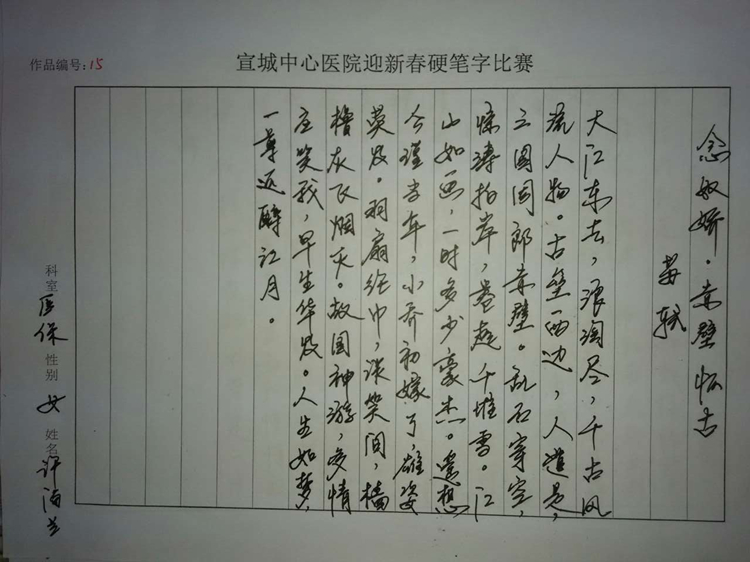 作品编号：15
宣城中心医院迎新春硬笔字比赛
念奴娇·赤壁怀古
苏轼
大江东去，浪淘尽，千古风
流人物。古垒西边，人道是，
三国周郎赤壁。乱石穿空，
惊涛拍岸，卷起千堆雪。江
山如画，一时多少豪杰。遥想
公瑾当年，小乔初嫁了，雄姿
英发。羽扇纶巾，谈笑间，樯
橹灰飞烟灭。故国神游，多情
应笑我，早生华发。人生如梦，
一尊还酹江月。
科室 医保 性别 女 姓名 许海兰